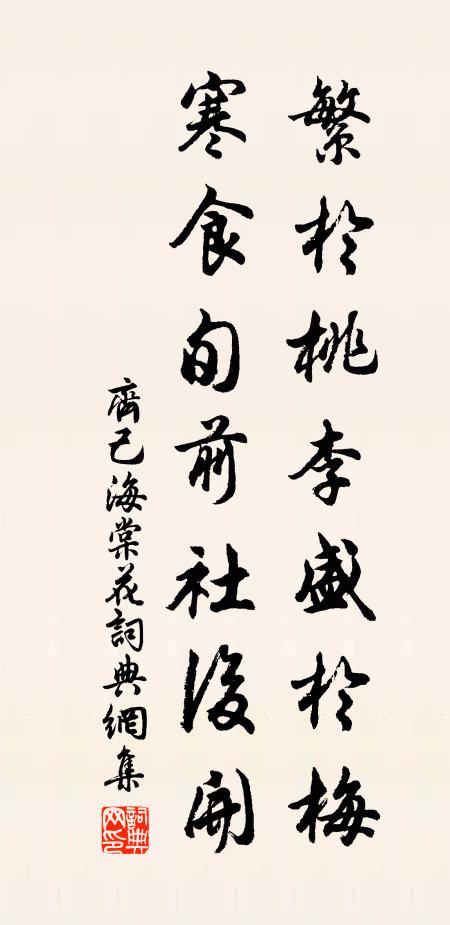 繁於桃李盛於梅
寒食旬前社後開
齊己海棠花詞典網集
詞典網印